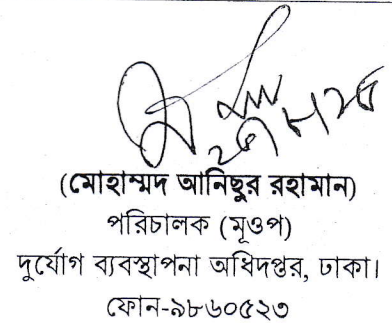 (মোহাম্মদ আনিছুর রহামান)
পরিচালক (মূওপ)
দুর্যোগ ব্যবস্থাপনা অধিদপ্তর, ঢাকা।
ফোন-৯৮৬০৫২৩